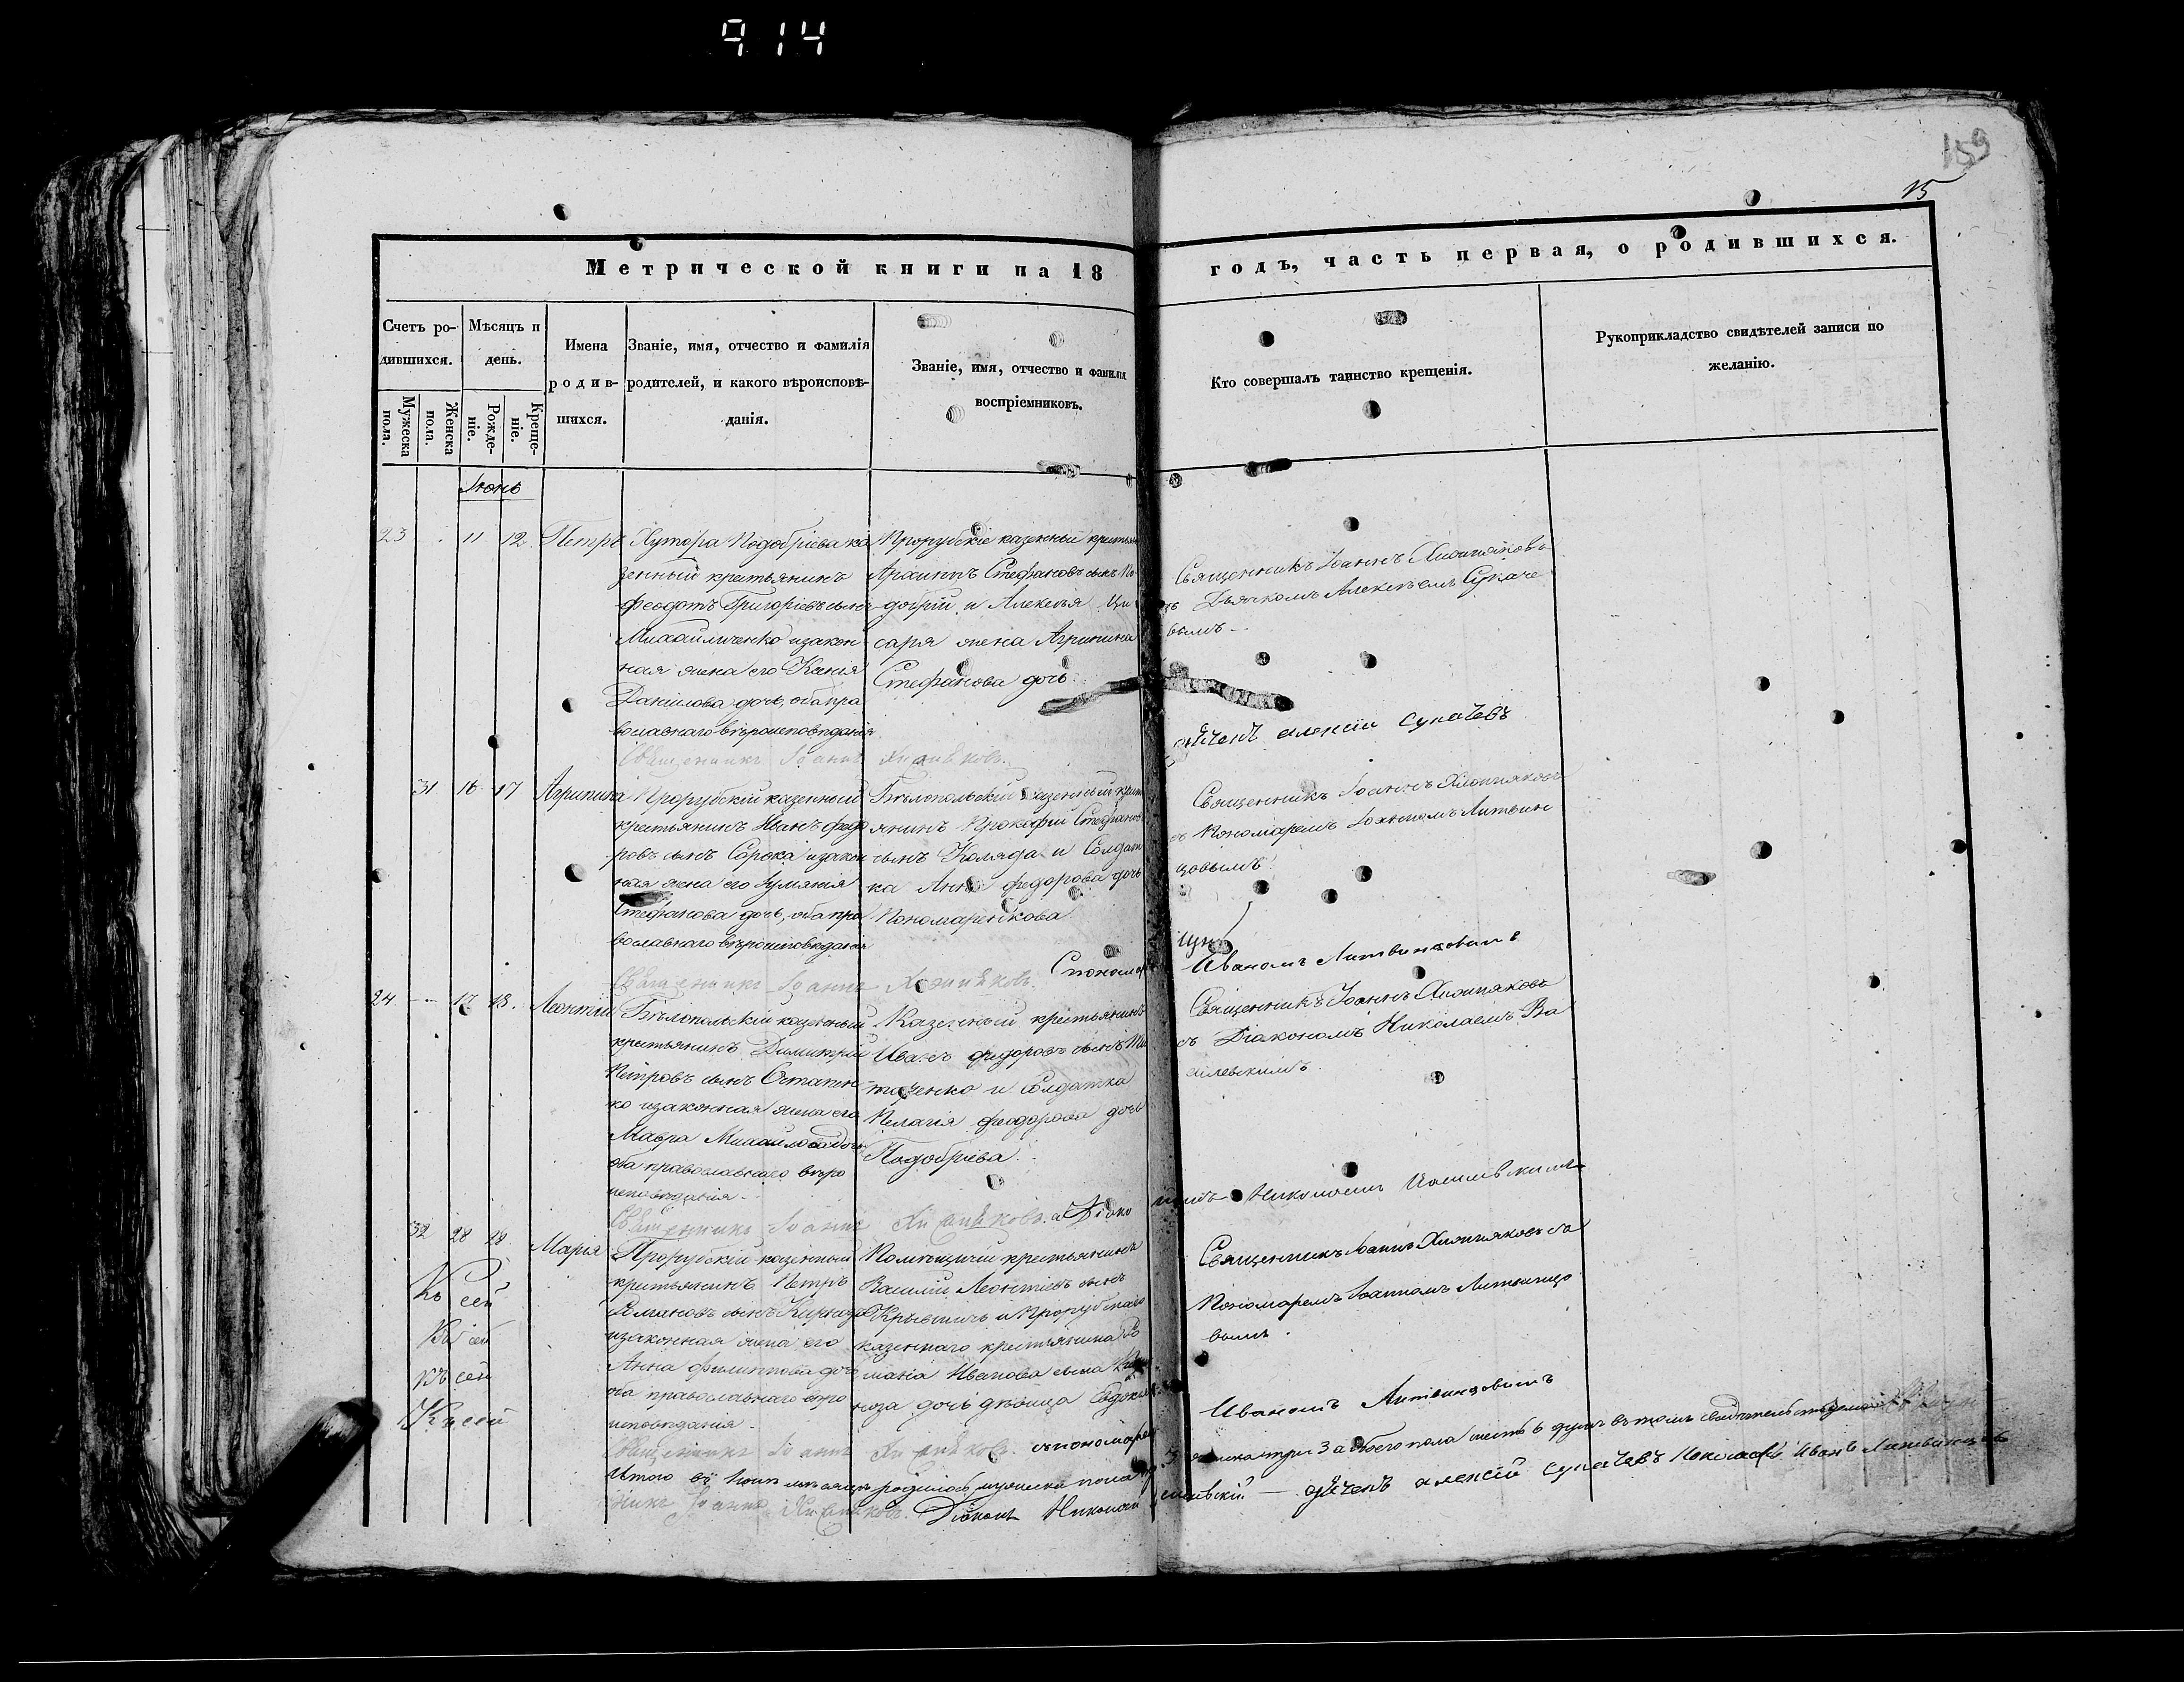 914
159
15
Метрической книги на 18 годъ, часть первая, о родившихся.
Счетъ ро-
дившихся.
Мужеска
пола.
Женска
пола.
Мѣсяцъ и
день.
Рожде-
ніе.
Креще-
ніе.
Имена
родив-
шихся.
Званіе, имя, отчество и фамилія
родителей, и какого вѣроисповѣ-
данія.
Званіе, имя, отчество и фамилія
воспріемниковъ.
Кто совершалъ таинство крещенія.
Рукоприкладство свидѣтелей записи по
желанію.
Іюнь
23 11 12 Петръ
Хутора Подобріева ка
зенный крестьянинъ
Феодотъ Григоріевъ сынъ
Михайличенко и закон
ная жена его Ксенія
Даніилова дочь, оба пра
вославнаго вѣроисповѣданія
Прорубскіе казенный крестьян
Архиппъ Стефановъ сынъ По
добрій и Алексѣя Ци
саря жена Агрипина
Стефанова дочь
Священникъ Іоаннъ Хижняковъ
съ Дьячкомъ Алексѣемъ Сукаче
вымъ
Священникъ Іоаннъ Хижняковъ
дячекъ алексій сукачевъ
31 16 17 Агрипина
Прорубскій казенный
крестьянинъ Иванъ Федо
ровъ сынъ Сорока и закон
ная жена его
Стефанова дочь, оба пра
вославнаго вѣроисповѣданія
Бѣлопольскій казенный крест
янинъ Прокофій Стефановъ
сынъ Коляда и Солдат
ка Анна Федорова дочь
Пономаренкова
Священникъ Іоаннъ Хижняковъ
съ Пономаремъ Іоанномъ Литвин
цовымъ
Священникъ Іоаннъ Хижняковъ. Спономар
Иваномъ Литвинцовымъ
24 17 18 Леонтій
Бѣлопольскій казенный
крестьянинъ Димитрій
Петровъ сынъ Остапен
ко и законная жена его
Мавра Михайлова дочь
оба православнаго вѣро
исповѣданія
Казенный крестьянинъ
Иванъ Федоровъ сынъ
и Солдатка
Пелагія Феодорова дочь
Подобріева
Священникъ Іоаннъ Хижняковъ
съ Діакономъ Николаемъ Ва
силевскимъ
Священникъ Іоаннъ Хижняковъ. съ Діако
номъ Николаемъ Василевскимъ
32 28 28 Марія
Прорубскій казенный
крестьянинъ Петръ
сынъ
и законная жена его
Анна Филиппова дочь
оба православнаго вѣро
исповѣданія
Помѣщичій крестьянинъ
Василій Леонтіевъ сынъ
и Прорубскаго
казеннаго крестьянина
Иванова сына
дочь дѣвица Евдокія
Священникъ Іоаннъ Хижняковъ съ
Пономаремъ Іоанномъ Литвинцо
вымъ
Къ сей
Къ сей
Къ сей
Къ сей
Священникъ Іоаннъ Хижняковъ. съ пономарем
Иваномъ Литвинцовымъ
Итого въ Іюнѣ мѣсяцѣ родилось мужеска пола 3 женска три 3 а обоего пола шесть 6 душъ въ томъ
Іоаннъ Хижняковъ. Діаконъ Николай Василевскій — дячекъ алексій сукачевъ Пономарь Иванъ Литвинцовъ